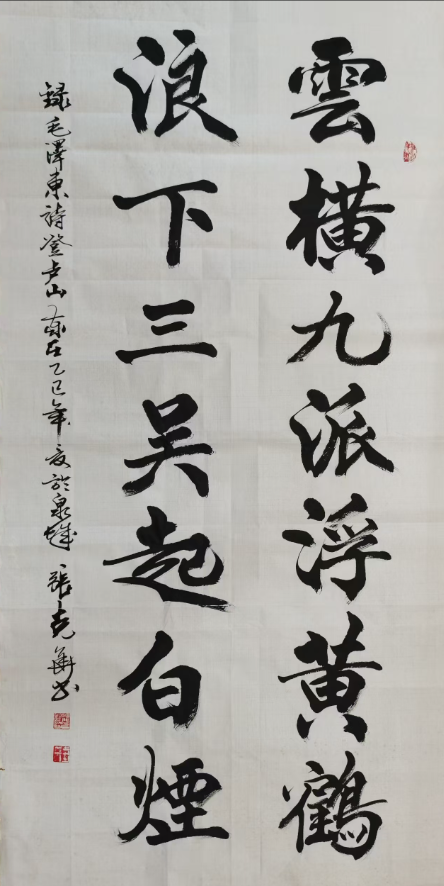 雲橫九派浮黃鶴
浪下三吴起白煙
録毛澤東詩登庐山 歲在乙巳年夏於泉城 張克華书